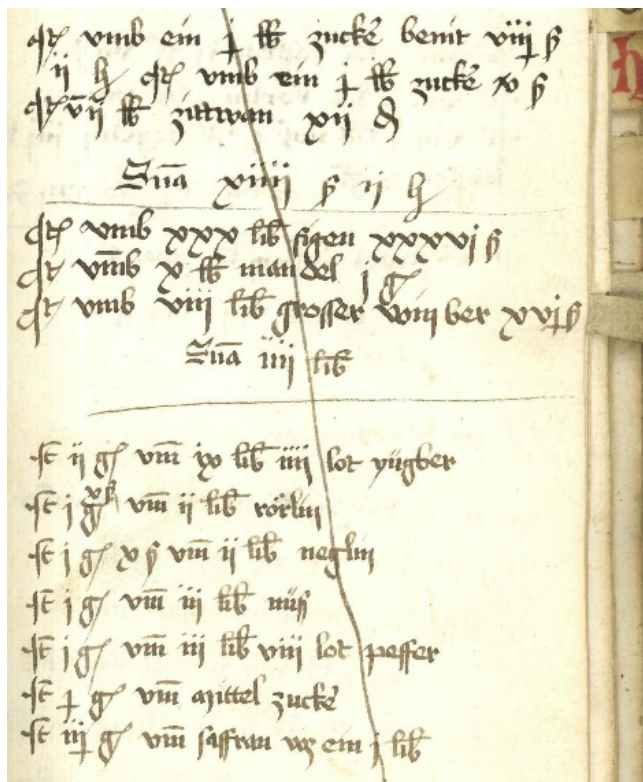 It vmb ein j lb zucke benit viij ß
ii h It vmb ein j lb zucke x ß
It vii lb zittwan xii d
Suma xiiii ß ii h
It vmb xxx lib figen xxxvj ß
It vmb x lb mandel j g
It vmb viii lib grosser winber xvj ß
Suma iiii lib
It ii g vm ix lib iiii lot yngber
It j g vm ii lib rörlin
It j g x ß vm ii lib neglin
It j g vm iii lib nüs
It j g vm iii lib viii lot peffer
It j g vm mittel zucke
It iij g vm saffran ein j lib